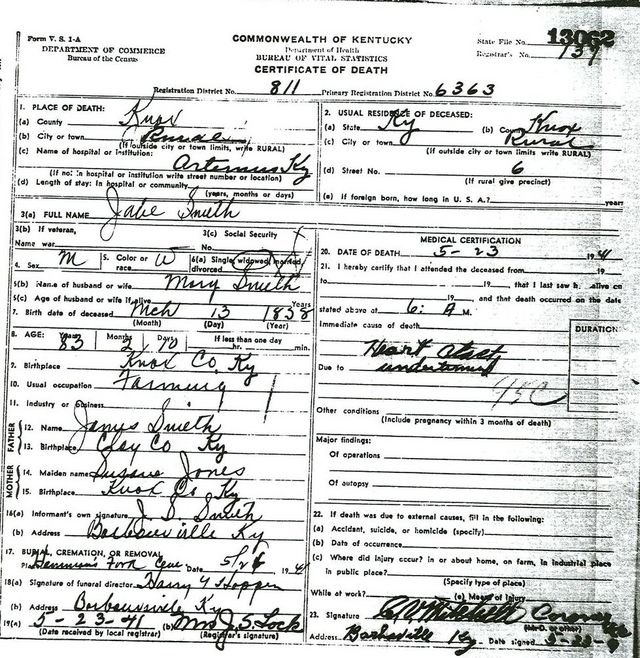 Form V. S. 1-A
DEPARTMENT OF COMMERCE
Bureau of the Census
COMMONWEALTH OF KENTUCKY
Department of Health
BUREAU OF VITAL STATISTICS
CERTIFICATE OF DEATH
State File No. 13062
Registrar's No. 137
Registration District No. 811 Primary Registration District No. 6363
1. PLACE OF DEATH:
(a) County Knox
(b) City or town Rural
(If outside city or town limits, write RURAL)
(c) Name of hospital or institution:
Artemus Ky
(If not in hospital or institution write street number or location)
(d) Length of stay: In hospital or community
(years, months or days)
2. USUAL RESIDENCE OF DECEASED:
(a) State Ky (b) County Knox
(c) City or town Rural
(If outside city or town limits, write RURAL)
(d) Street No. 6
(If rural give precinct)
(e) If foreign born, how long in U. S. A.? years
3(a) FULL NAME Jabe Smith
3(b) If veteran,
Name war
3(c) Social Security
No.
4. Sex M 5. Color or race W 6(a) Single, widowed, married, divorced
5(b) Name of husband or wife Mary Smith
5(c) Age of husband or wife if alive Years
7. Birth date of deceased Mch 13 1858
(Month) (Day) (Year)
8. AGE: Years 83 Months 2 Days 10 If less than one day
hr. min.
9. Birthplace Knox Co. Ky
10. Usual occupation Farming
11. Industry or business
FATHER
12. Name James Smith
13. Birthplace Clay Co Ky
MOTHER
14. Maiden name Susane Jones
15. Birthplace Knox Co Ky
16(a) Informant's own signature J. S. Smith
(b) Address Barbourville Ky
17. BURIAL, CREMATION, OR REMOVAL
Place Ford Cem 5/26 194
18(a) Signature of funeral director Harry Y Hopper
(b) Address Barbourville Ky
19(a) 5-23-41 (b) Mrs J. S. Lock
(Date received by local registrar) (Registrar's signature)
MEDICAL CERTIFICATION
20. DATE OF DEATH 5-23 1941
21. I hereby certify that I attended the deceased from 19
to 19 that I last saw h alive on
19 and that death occurred on the date
stated above at 6: A M.
Immediate cause of death
DURATION
Heart
Due to
95c
Other conditions
(Include pregnancy within 3 months of death)
Major findings:
Of operations
Of autopsy
22. If death was due to external causes, fill in the following:
(a) Accident, suicide, or homicide (specify)
(b) Date of occurrence
(c) Where did injury occur? in or about home, on farm, in industrial place
in public place?
(Specify type of place)
While at work? (e) Means of injury
23. Signature C V Mitchell Coroner
(M. D. or other)
Address Ky Date signed 5-23-